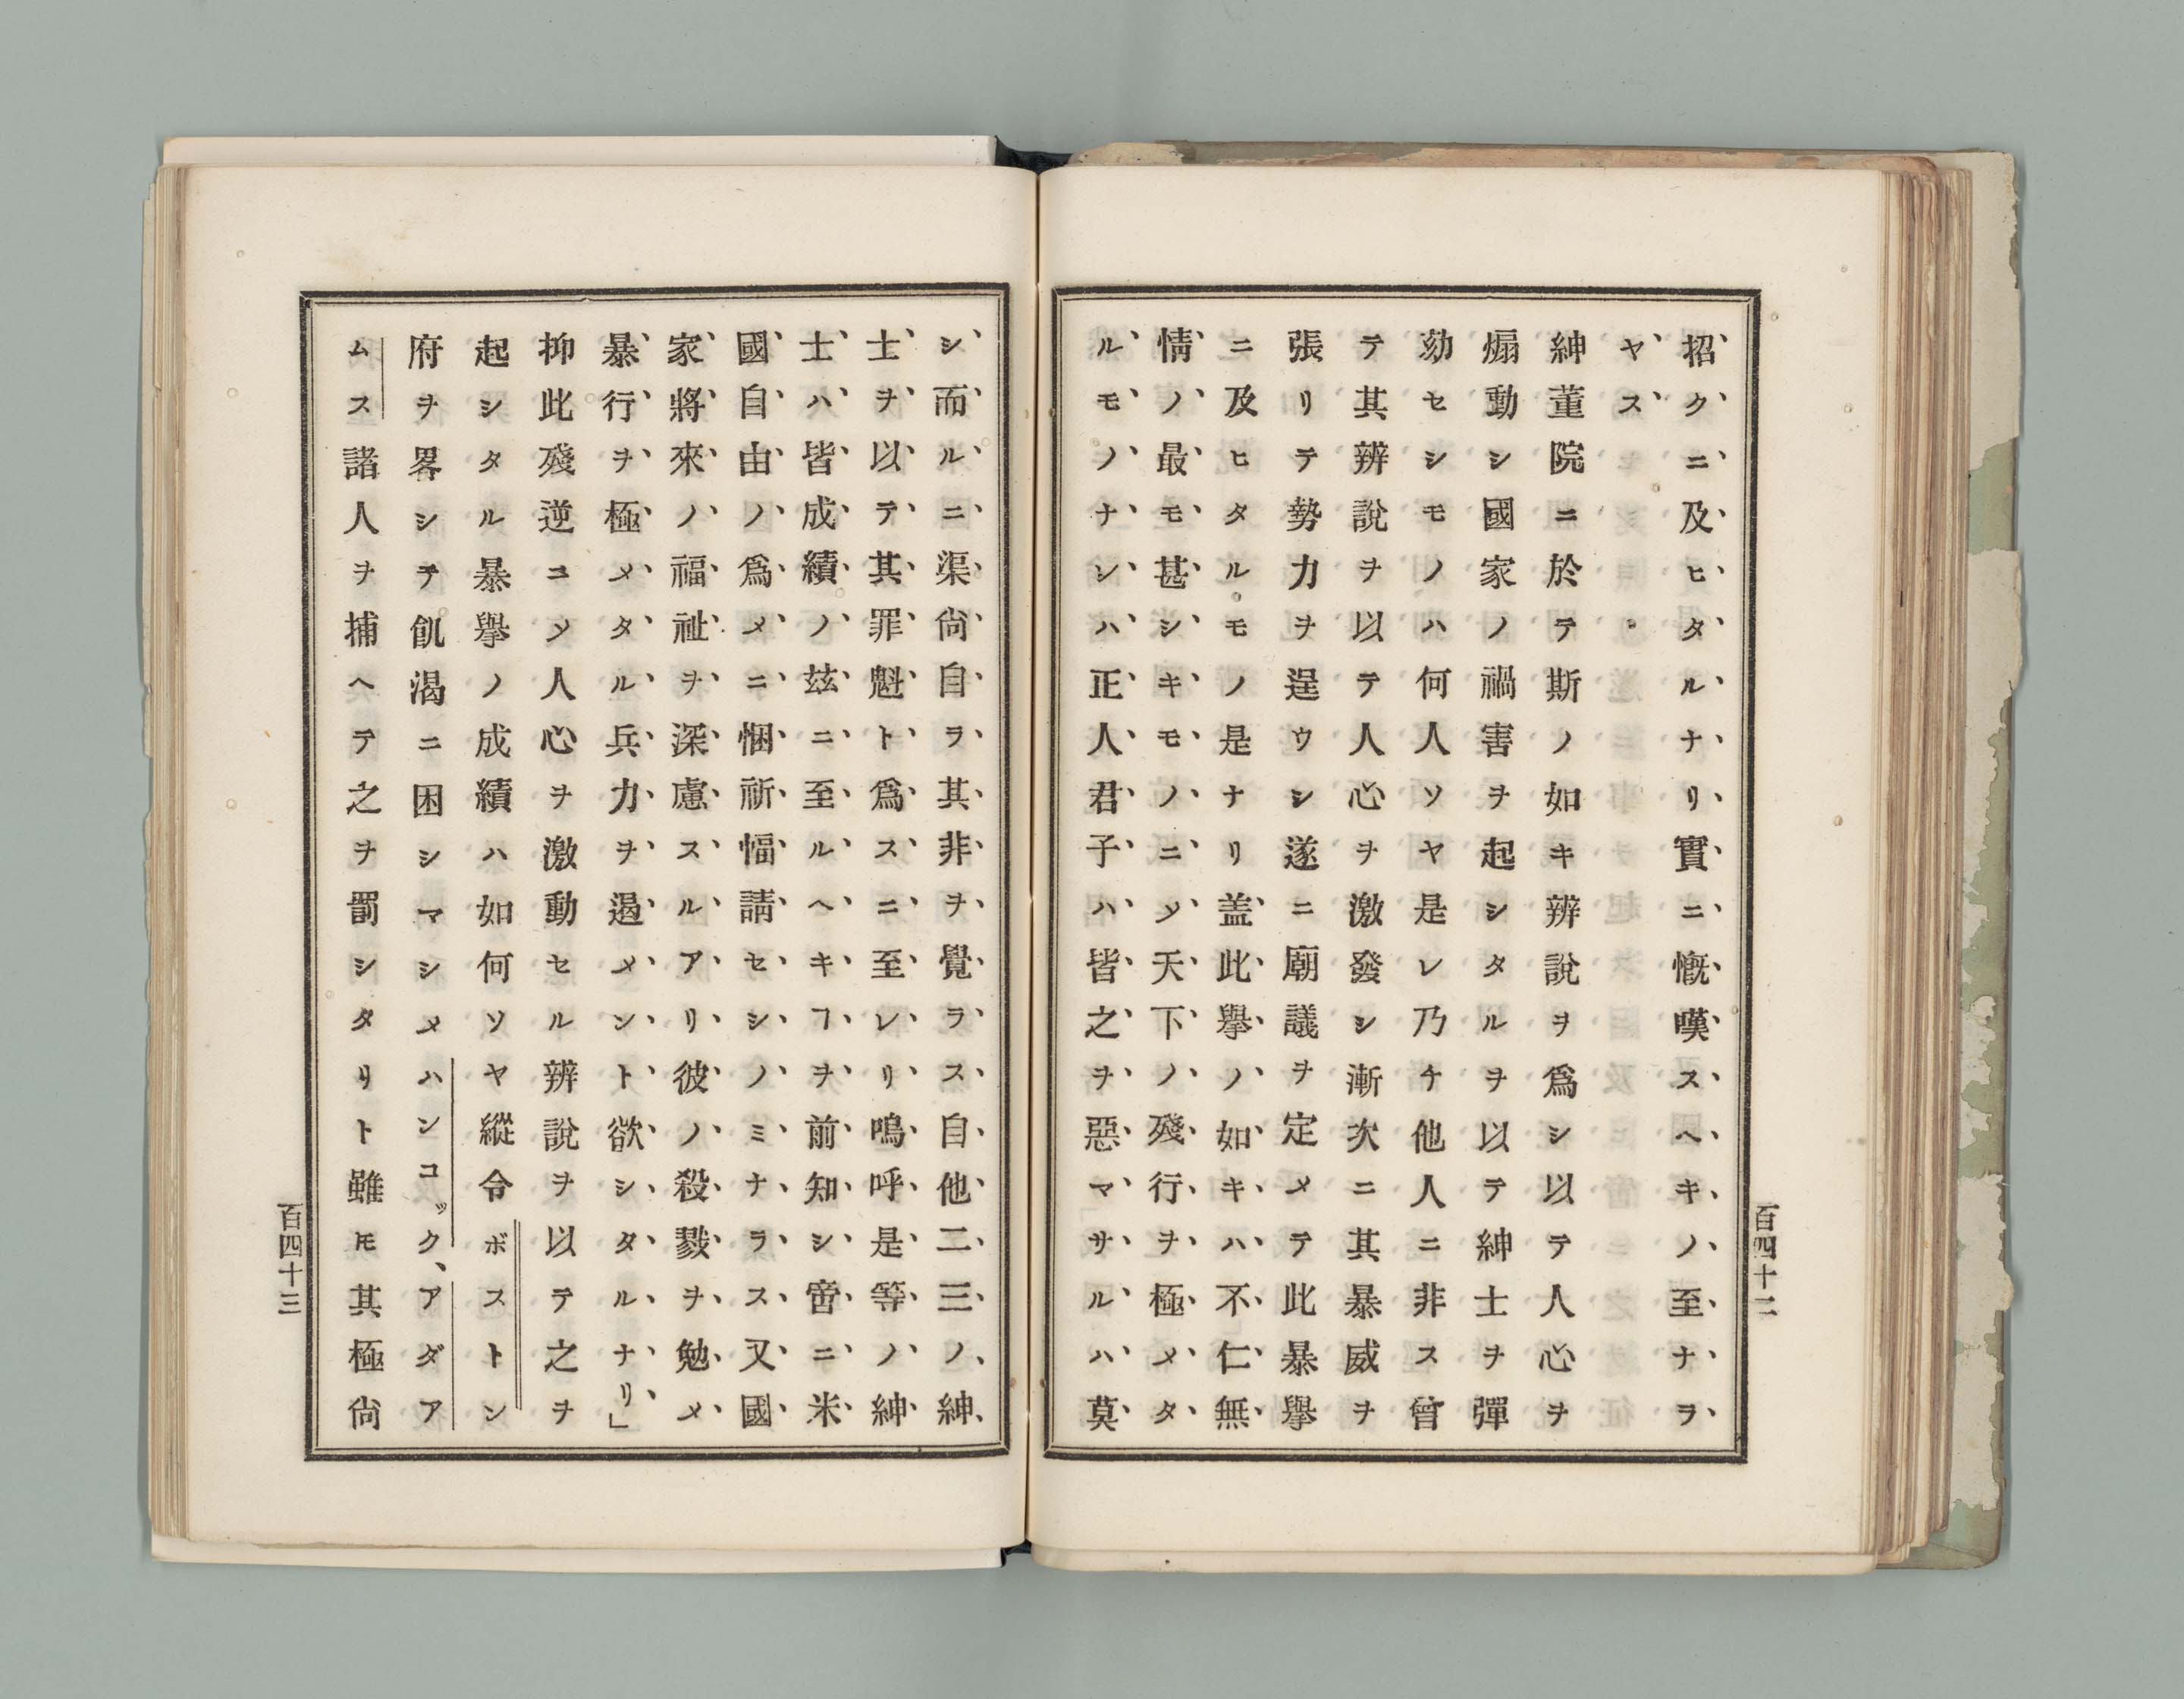 招クニ及ヒタルナリ實ニ慨嘆スヘキノ至ナラ
ヤス。
紳董院ニ於テ斯ノ如キ辨說ヲ爲シ以テ人心ヲ
煽動シ國家ノ禍害ヲ起シタルヲ以テ紳士ヲ彈
劾セシモノハ何人ソヤ是レ乃チ他人ニ非ス曾
テ其辨說ヲ以テ人心ヲ激發シ漸次ニ其暴威ヲ
張リテ勢力ヲ逞ウシ遂ニ廟議ヲ定メテ此暴擧
ニ及ヒタル。モノ是ナリ盖此擧ノ如キハ不仁無
情ノ最モ甚シキモノニ〆天下ノ殘行ヲ極メタ
ルモノナシハ正人君子ハ皆之ヲ惡マサルハ莫
百四十二
シ而ルニ渠尙自ラ其非ヲ覺ラス自他二三ノ紳
士ヲ以テ其罪魁ト爲スニ至レリ嗚呼是等ノ紳
士ハ皆成績ノ玆ニ至ルヘキヿヲ前知シ啻ニ米
國自由ノ爲メニ悃祈愊請セシノミナラス又國
家將來ノ福祉ヲ深慮スルアリ彼ノ殺戮ヲ勉メ
暴行ヲ極メタル兵力ヲ遏メント欲シタルナリ」
抑此殘逆ニ〆人心ヲ激動セル辨說ヲ以テ之ヲ
起シタル暴擧ノ成績ハ如何ソヤ縱令ボストン
府ヲ畧シテ飢渴ニ困シマシメハンコック、アダア
ムス諸人ヲ捕ヘテ之ヲ罰シタリト雖𪜈其極尙
百四十三